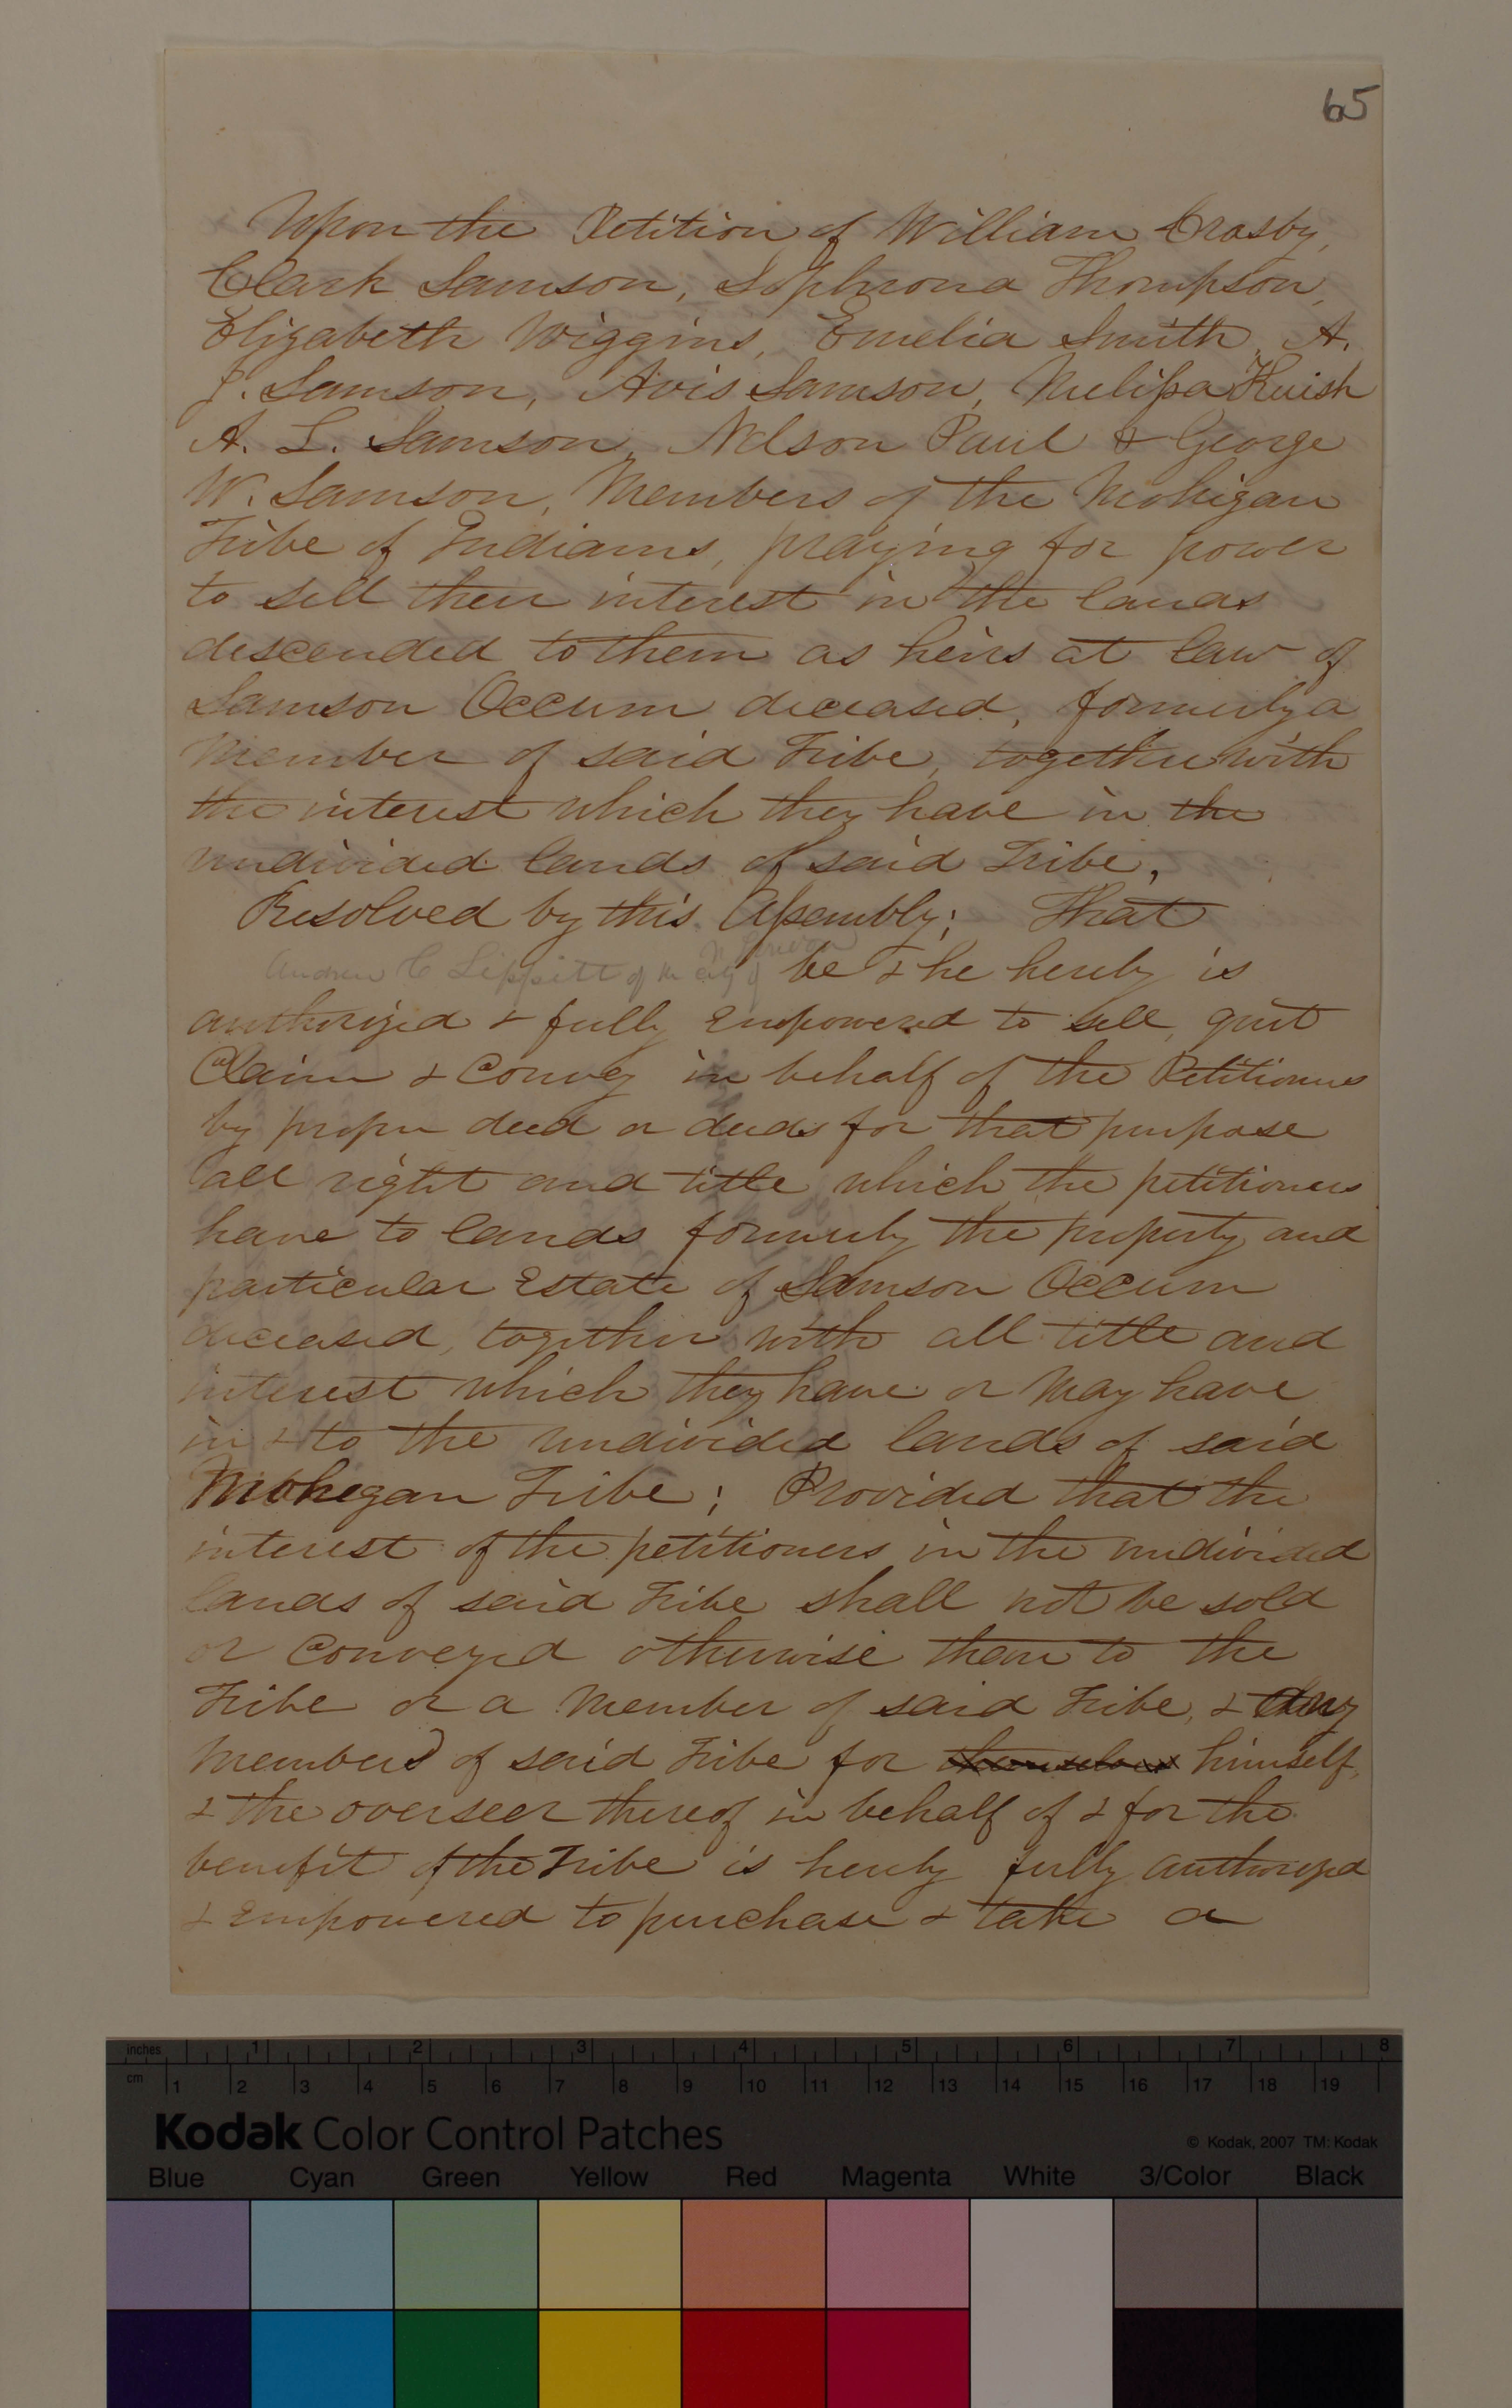 65
Upon the Petition of William Crosby,
Clark Samson, Sophrona Thompson,
Elizabeth Wiggins, Emelia Smith, A.
J. Samson, Avis Samson, Melissa
A. L. Samson, Nelson Paul & George
W. Samson, Members of the Mohigan
Tribe of Indians, praying for power
to sell their interest in the lands
descended to them as heirs at law of
Samson Occum deceased, formerly a
Member of said Tribe, together with
the interest which they have in the
undivided lands of said Tribe.
Resolved by this Assembly; That
Andrew C Lippitt of the city of be & he hereby is
authorized & fully Empowered to sell, quit
Claim & Convey in behalf of the Petitioners
by proper deed or deeds for that purpose
all right and title which the petitioners
have to lands formerly the property and
particular Estate of Samson Occum
deceased, together with all title and
interest which they have or May have
in & to the undivided lands of said
Mohegan Tribe; Provided that the
interest of the petitioners in the undivided
lands of said Tribe shall not be sold
or Conveyed otherwise than to the
Tribe or a Member of said Tribe, & any
Member of said Tribe for themselves himself,
& the overseer thereof in behalf of & for the
benefit of the Tribe is hereby fully authorized
& Empowered to purchase & take a
inches 1 2 3 4 5 6 7 8
cm 1 2 3 4 5 6 7 8 9 10 11 12 13 14 15 16 17 18 19
Kodak Color Control Patches
© Kodak, 2007 TM: Kodak
Blue Cyan Green Yellow Red Magenta White 3/Color Black